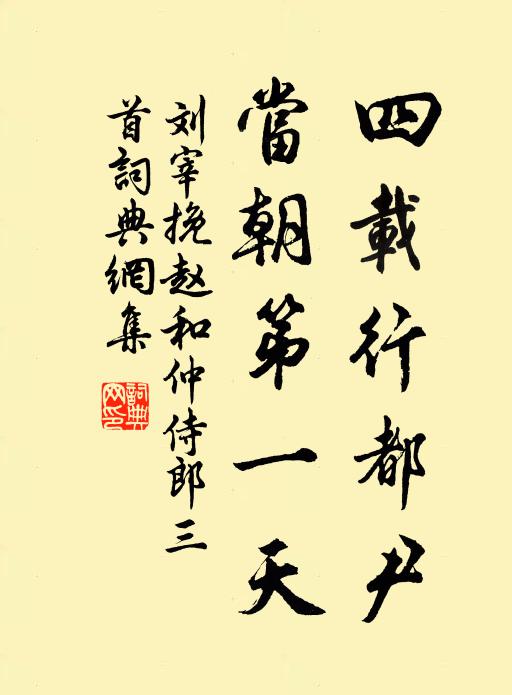 四載行都尹
當朝第一天
刘宰挽赵和仲侍郎三
首詞典網集
詞典網印